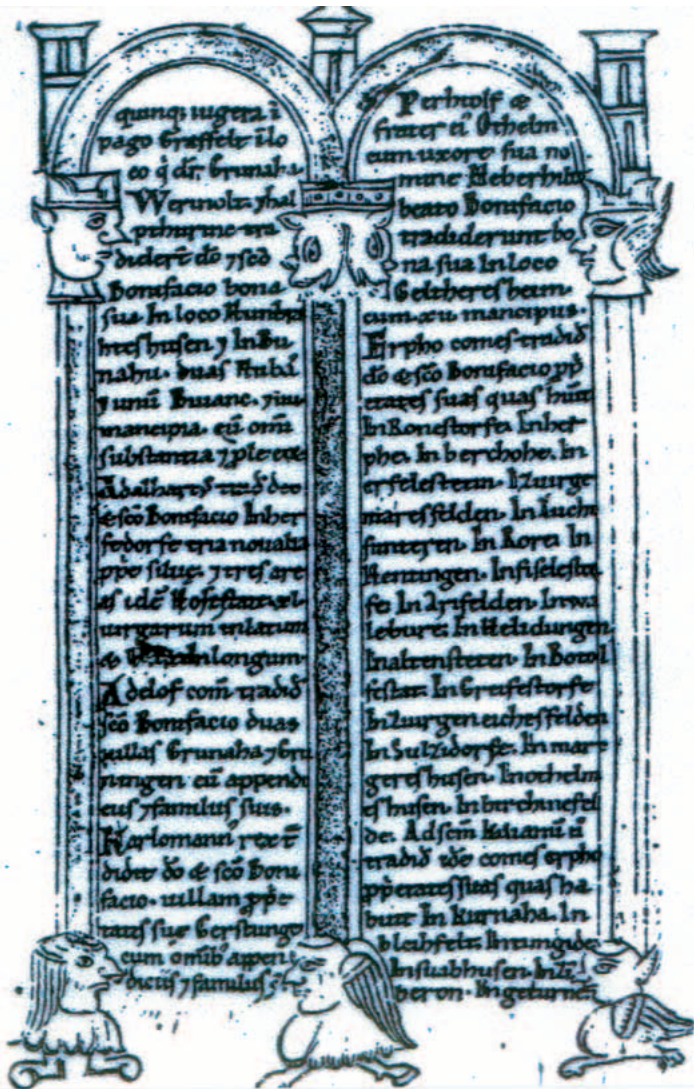 quinq; iugera ī
pago Graffelt ī lo
co q̇ dr̄ Grunaha.
Wernolt yhal
pthurinc tra
didert̄ dō ⁊ scō
Bonifacio bona
sua In loco
hreshusen ⁊ In Bu
nahu. duas
⁊ unū Biuanc. ⁊
mancipia. cū om̄i
substantia ⁊
Adalhart trad̄ deo
& scō Bonifacio In her
fedorfe tria noualia
ppe siluę. ⁊ tres are
as idē hofstat. xl.
uirgarum in latum
& In longum.
Adelof com̄ tradid̄
scō Bonifacio duas
uillas Grunaha ⁊ Gru
ningen cū append
ciis ⁊ familiis suis.
Karlomann rex t̄
didit dō & scō Boni
facio. uillam ꝓp̄e
tatis suę Gerstungꝰ
cum om̄ib appen
diciis ⁊ familiis
Perhtolf &
frater eiꝰ Othelm
cum uxore sua no
mine Heberhilt
beato Bonifacio
tradiderunt bo
na sua In loco
Geltheresheim
cum xu mancipiis.
Erpho comes tradid̄
dō & scō Bonifacio ꝓp̄
etates suas quas
In Ronestorfe. In het
phe. In berchohe. In
erfelestein. In Zurge
maresfelden. In Fuchs
In Rore. In
Hentingen. In fiselesta
fe. In Irifelden. In wa
lebure. In Helidungen.
In altensteten. In Botol
festat. In Greifestorfe
In Zurgen euchesfelden
In Sulzidorfe. In mare
gereshusen. In othelm
eshusen. In birchinefel
de. Ad scm̄ kilianū ū
tradid̄ idē comes erpho
ꝓp̄etates suas quas ha
buit In kurnaha. In
bleihfelt. In tungide
In suabhusen. In
beron. In geturne.